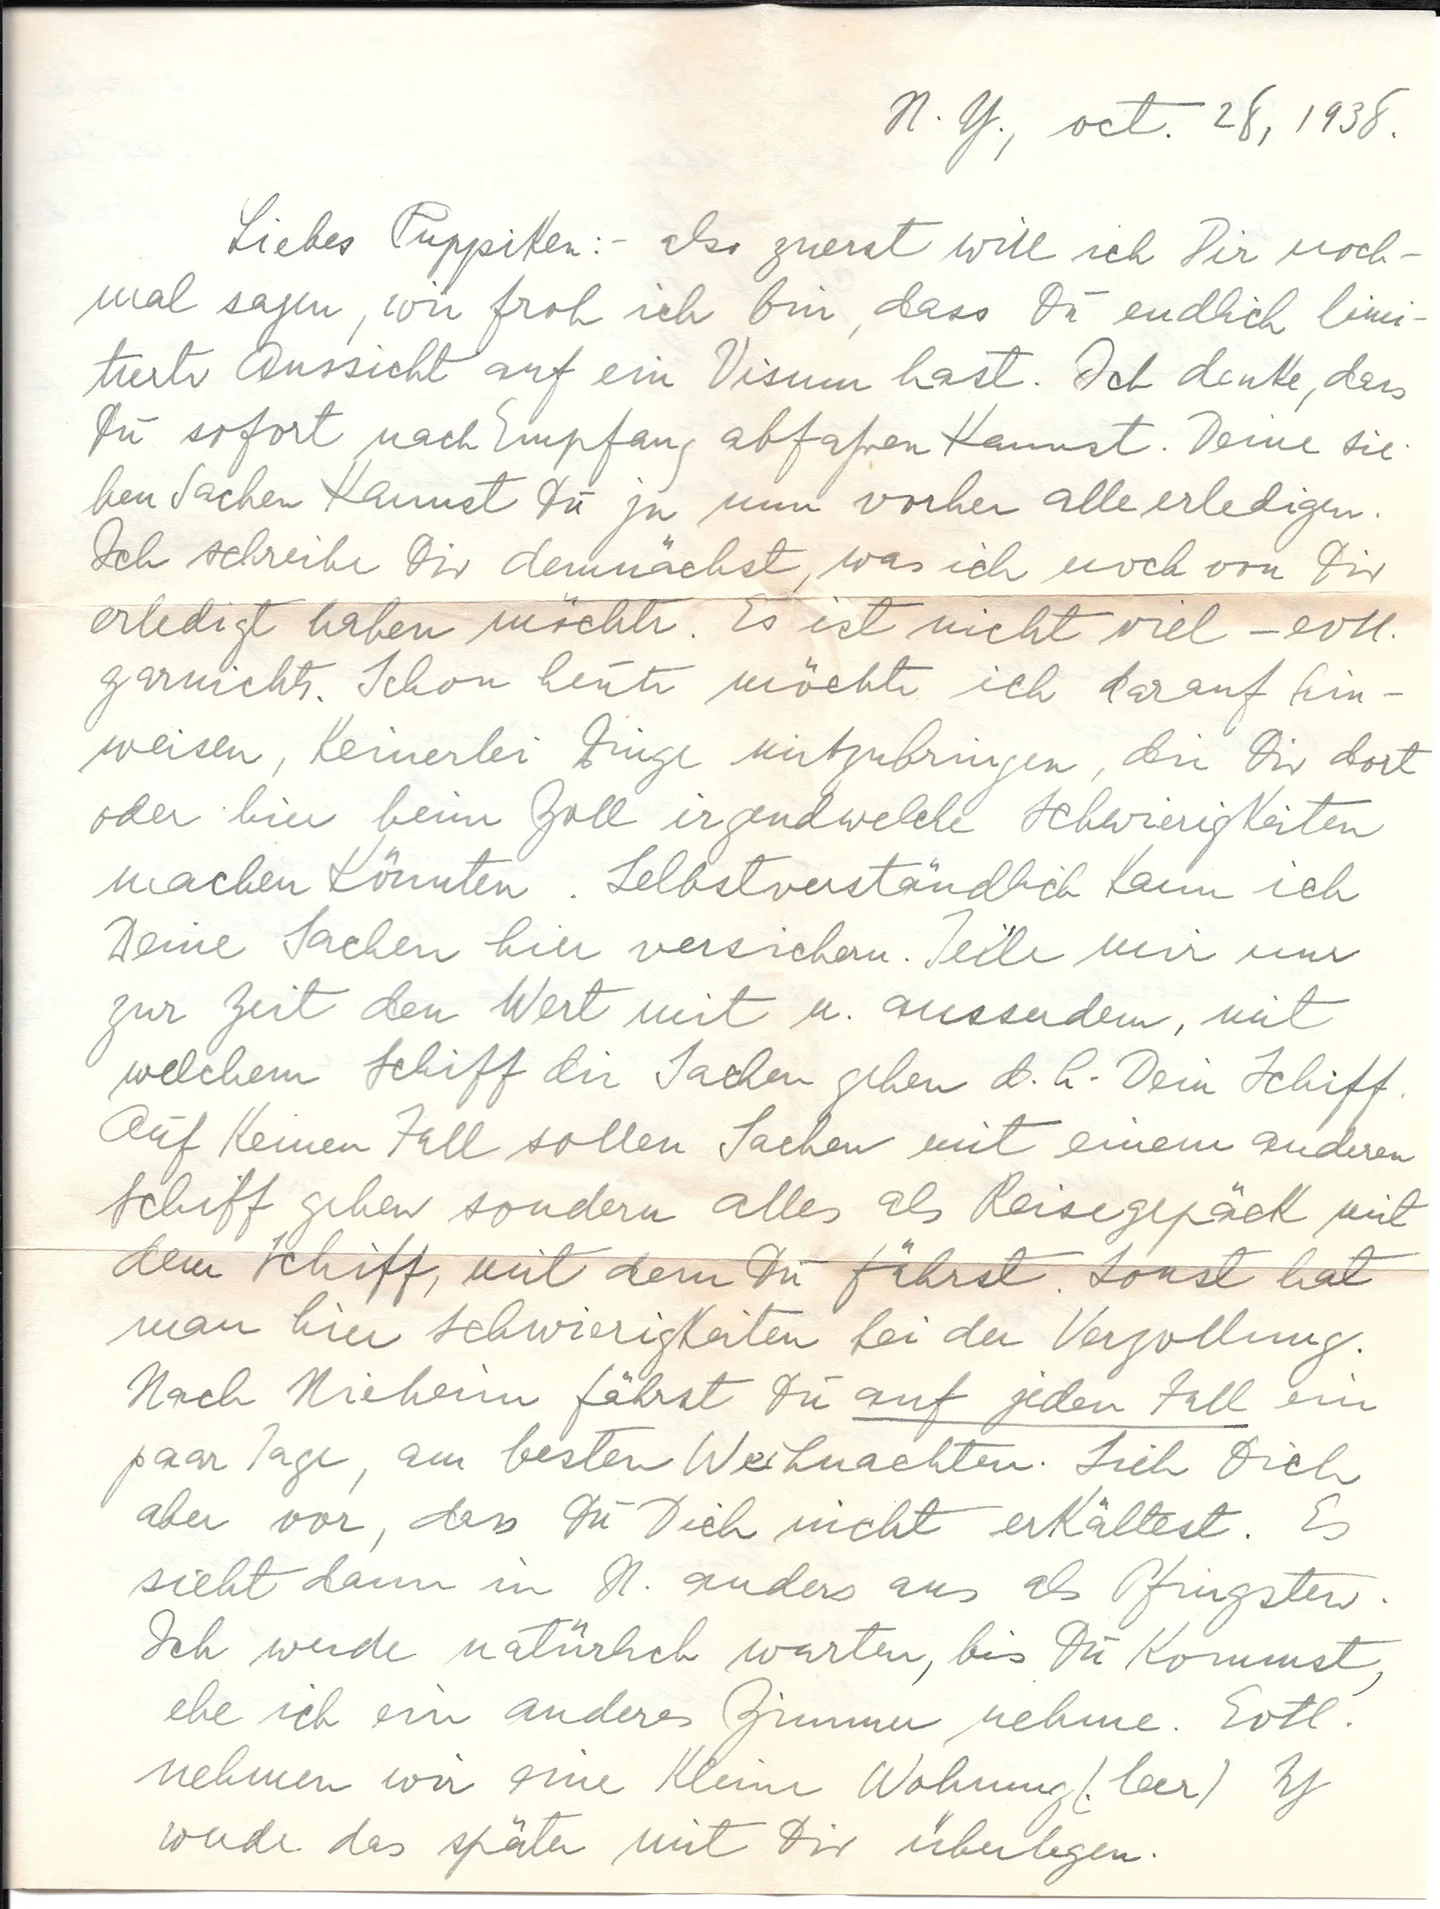 N. Y., oct. 28, 1938.
Liebes Puppiken:- also zuerst will ich Dir noch-
mal sagen, wie froh ich bin, dass Du endlich limi-
tierte Aussicht auf ein Visum hast. Ich denke, dass
Du sofort nach Empfang abfahren kannst. Deine sie-
ben Sachen kannst Du ja nun vorher alle erledigen.
Ich schreibe Dir demnächst, was ich noch von Dir
erledigt haben möchte. Es ist nicht viel – evtl.
garnichts. Schon heute möchte ich darauf hin-
weisen, keinerlei Dinge mitzubringen, die Dir dort
oder hier beim Zoll irgendwelche Schwierigkeiten
machen könnten. Selbstverständlich kann ich
Deine Sachen hier versichern. Teile mir nur
zur Zeit den Wert mit u. ausserdem, mit
welchem Schiff die Sachen gehen d. h. Dein Schiff.
Auf keinen Fall sollen Sachen mit einem anderen
Schiff gehen sondern alles als Reisegepäck mit
dem Schiff, mit dem Du fährst. Sonst hat
man hier Schwierigkeiten bei der Verzollung.
Nach Nieheim fährst Du auf jeden Fall ein
paar Tage, am besten Weihnachten. Sieh Dich
aber vor, dass Du Dich nicht erkältest. Es
sieht dann in N. anders aus als Pfingsten.
Ich werde natürlich warten, bis Du kommst,
ehe ich ein anderes Zimmer nehme. Evtl.
nehmen wir eine kleine Wohnung (leer) Ich
werde das später mit Dir überlegen.